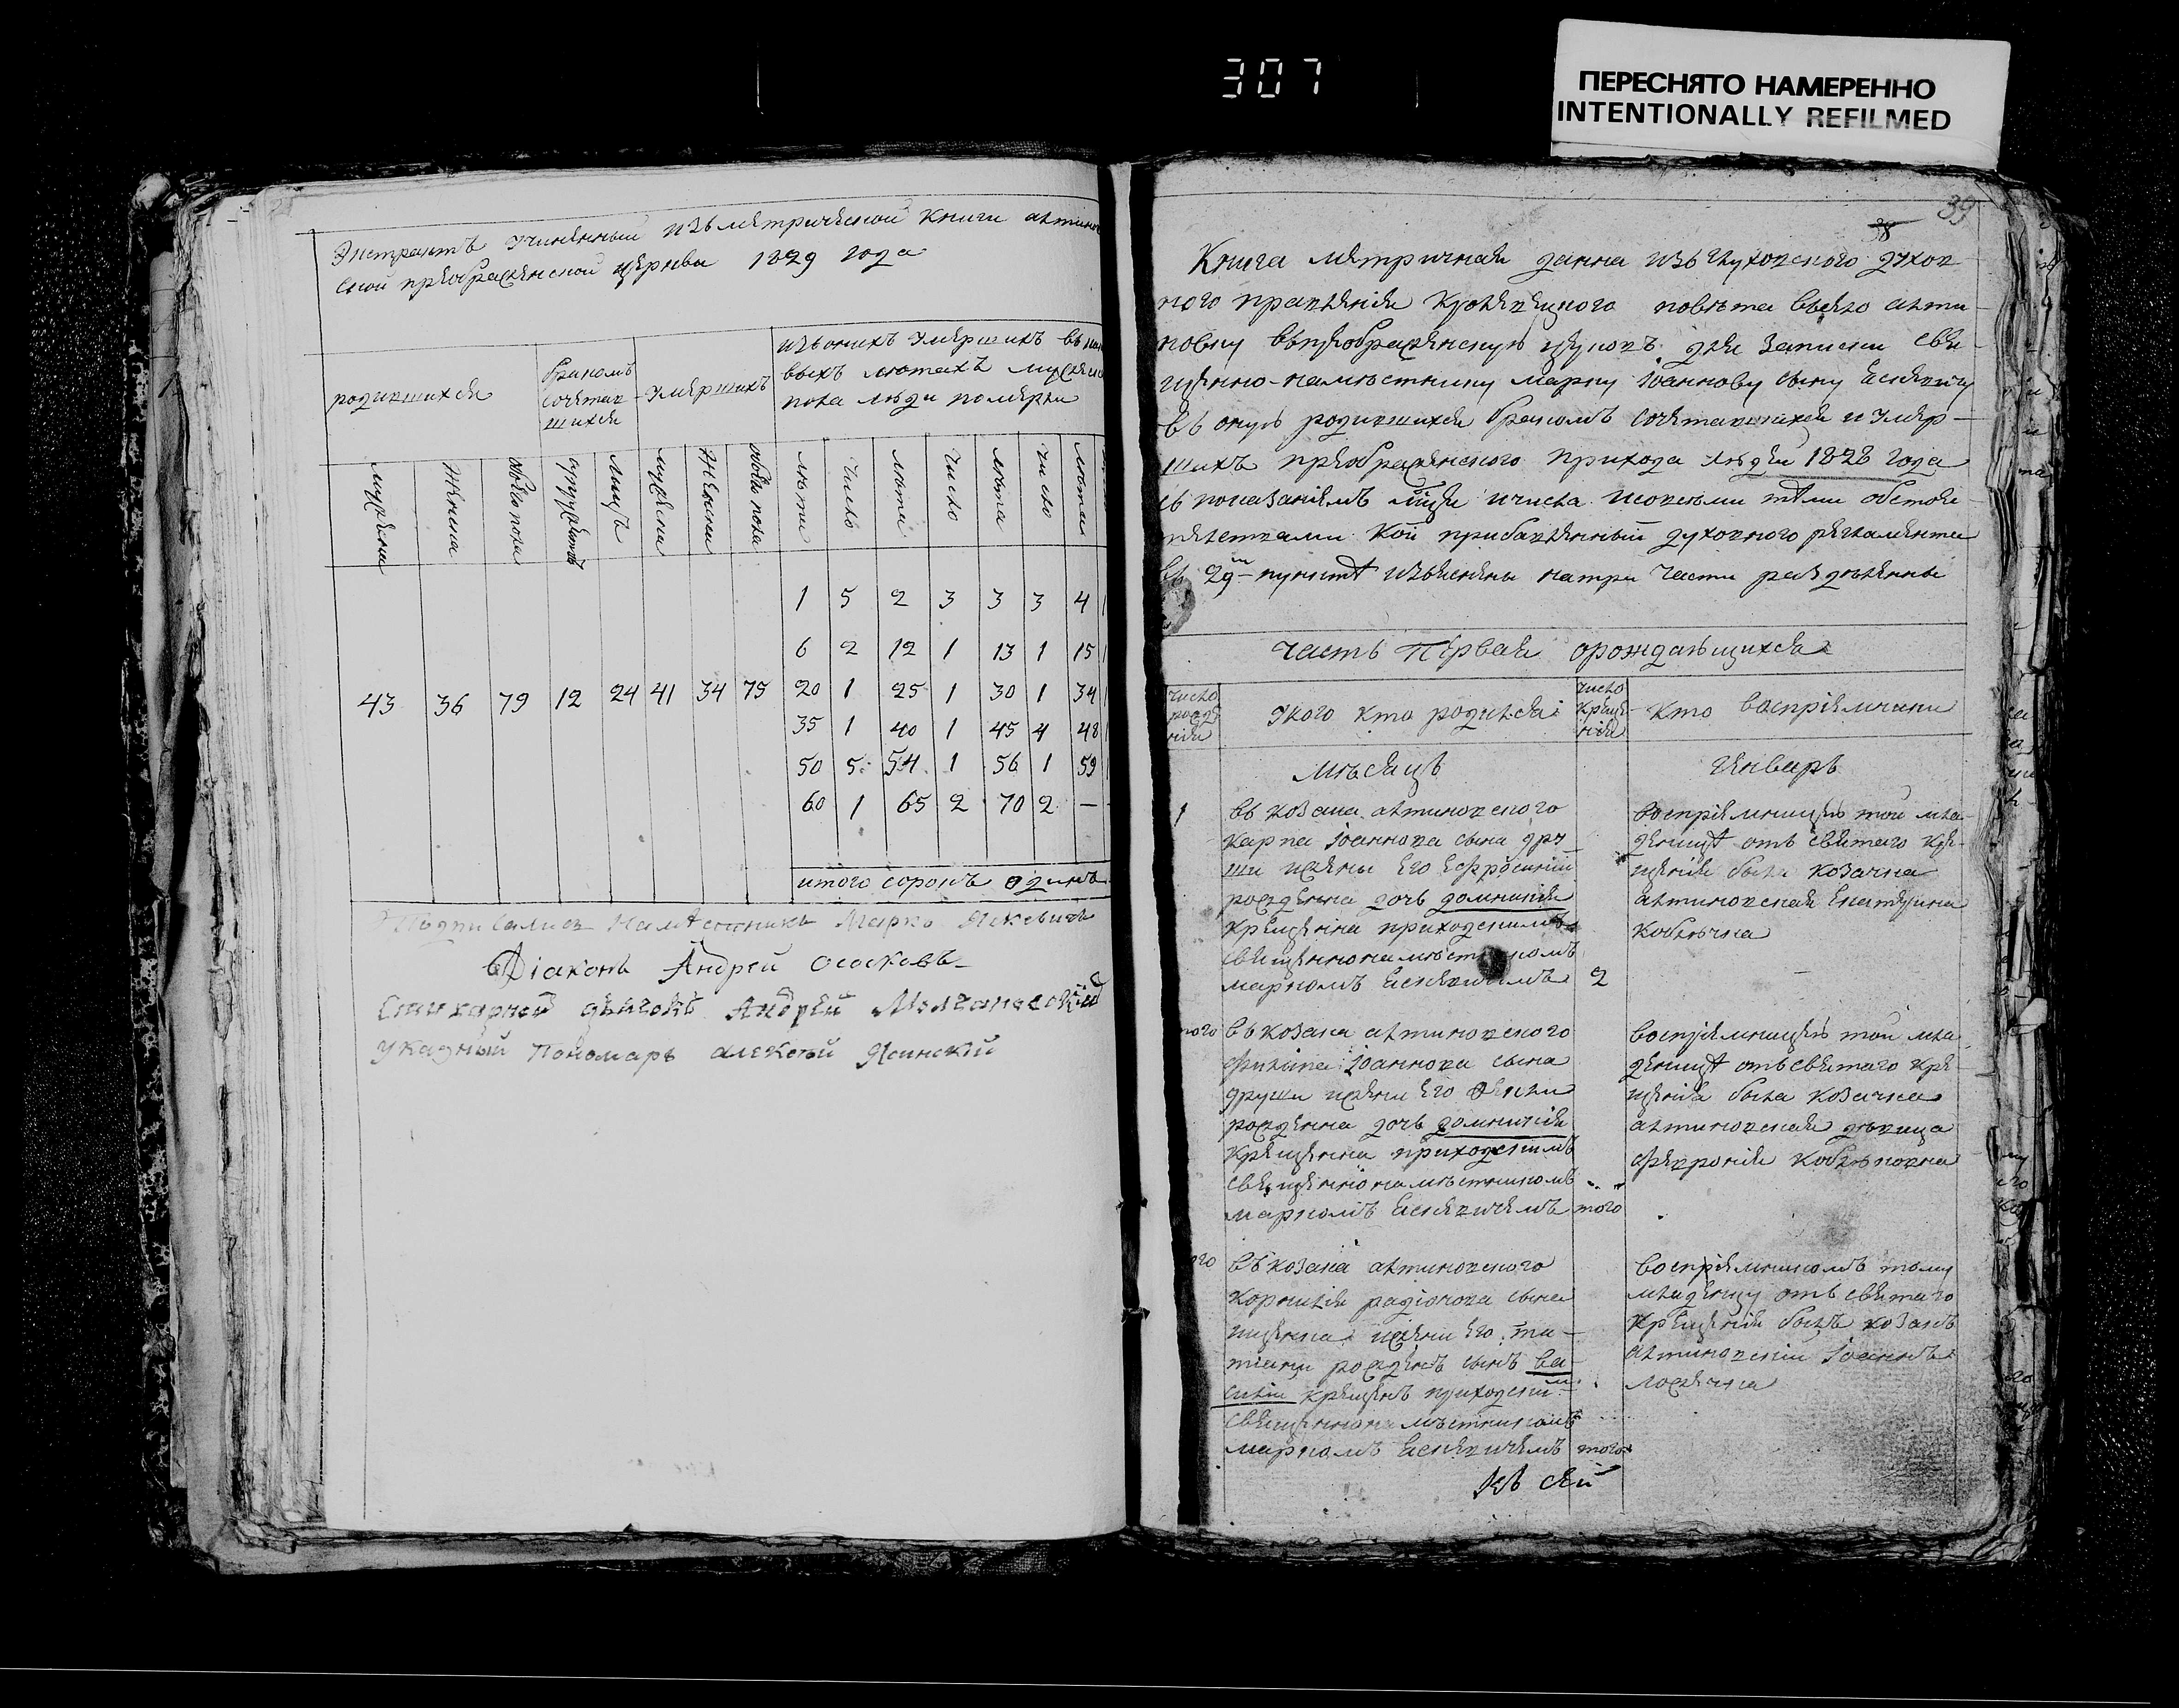 307
ПЕРЕСНЯТО НАМЕРЕННО
INTENTIONALLY REFILMED
Экстрактъ учиненный изъ метрической книги
ской преображенской церкви 1829 года
родившихся
бракомъ
сочетав
шихся
умершихъ
изъ оныхъ умершихъ въ
выхъ лѣтахъ
пола люди померли
мужеска
женска
обоего пола
супружествъ
лицъ
мужеска
женска
обоего пола
лѣта
число
лѣта
число
лѣта
число
лѣта
1 5 2 3 3 3 4
6 2 12 1 13 1 15
20 1 25 1 30 1 34
43 36 79 12 24 41 34 75
35 1 40 1 45 4 48
50 5 54 1 56 1 59
60 1 65 2 70 2 —
итого сорокъ одинъ
Подписались Намѣстникъ Марко Яскевичъ
Діаконъ Андрей Ососковъ
Стихарный дьячокъ Андрей Молчановскій
указный Пономарь алексѣй Ясинскій
38 39
Книга метричная данна изъ глуховского духов
ного правленія кролевецкого повѣта въ село алти
новку въ преображенскую церковъ для записки свя
щенно-намѣстнику марку Іоаннову сыну Ескевичу
въ оную родившихся бракомъ сочетавшихся и умер-
шихъ преображенского прихода людей 1828 года
съ показаніемъ мѣсяца и числа и со всѣми тѣми обстоя
телствами кои прибавленный духовного регламента
въ 29м пунктѣ изъяснены на три части раздѣленны
часть первая о рождающихся
число
рожде
нія
у кого кто родился
число
креще
нія
кто воспріемники
мѣсяцъ Генваръ
1 въ козака алтиновского
карпа Іоаннова сына дру
ши жены его Ефросиніи
рожденна дочь домникія
крещенна приходскимъ
священнонамѣстникомъ
маркомъ Ескевичемъ 2
воспріемницею той мла
деницѣ отъ святаго кре-
щенія была козачка
алтиновская Екатерина
того въ козака алтиновского
филипа Іоаннова сына
жены его Феклы
рожденна дочь домникія
крещенна приходскимъ
священнонамѣстникомъ
маркомъ Ескевичемъ того
воспріемницею той мла
деницѣ отъ святаго кре
щенія была козачка
алтиновская дѣвица
феврония
того въ козака алтиновского
корнилія радіонова сына
жены его та-
тіаны рожденъ сынъ ва-
силій крещенъ приходским
священнонамѣстникомъ
маркомъ Ескевичемъ того
воспріемникомъ тому
младенцу отъ святаго
крещенія былъ козакъ
алтиновскій Іоаннъ
къ сей